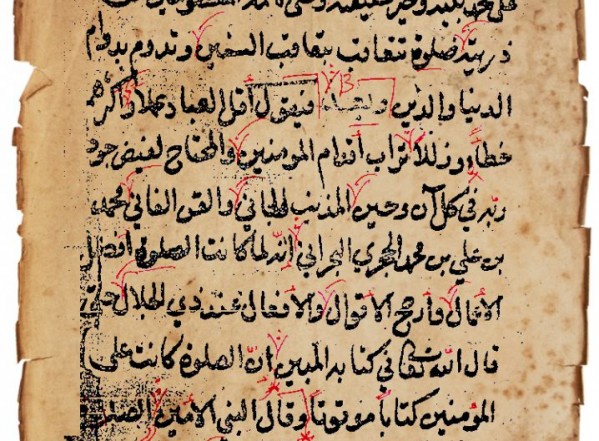 ذريته صلوة تتعاقب بتعاقب السنين وتدوم بدوام
الدنيا والدين وبعد فيقول أقل العباد عملا وأكثرهم
خطأ وزللا تراب أقدام المومنين والمحتاج لفيض جود
ربه في كل آن وحين المذنب الجاني والقن الفاني محمد
بن علي بن محمد البحراني انه لما كانت الصلوة أفضل
الأعمال وأرجح الأقوال والأفعال عند ذي الجلال حتى
قال الله تعالى في كتابه المبين ان الصلوة كانت على
المؤمنين كتابا موقوتا وقال النبي الأمين الصلوة